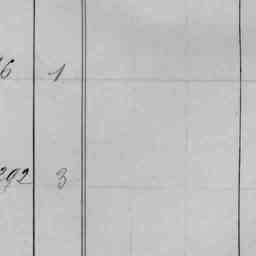 6 1
292 3